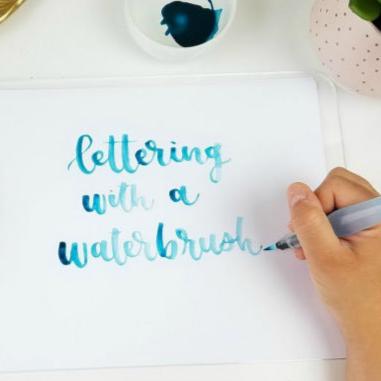 lettering
with a
waterbrush